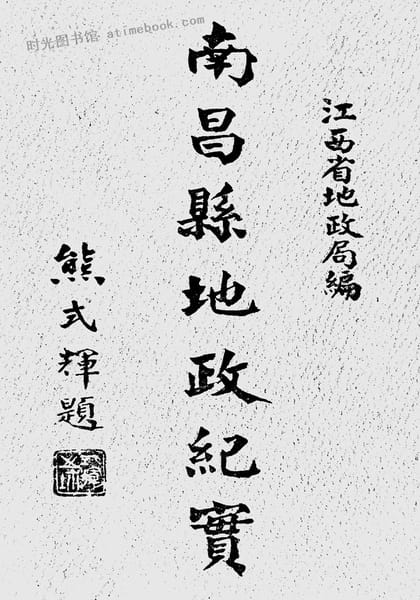 时光图书馆 atimebook.com
江西省地政局編
南昌縣地政紀實
熊式輝題